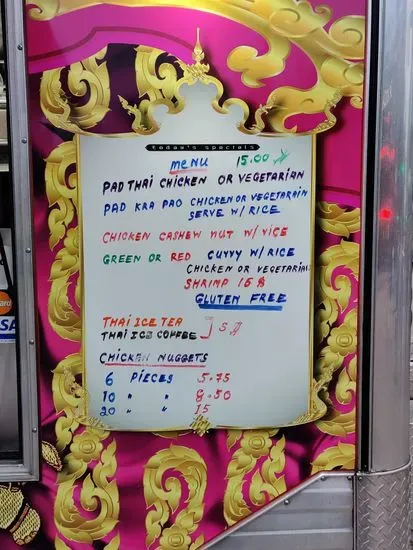 today's specials
menu 15.00
PAD THAI CHICKEN OR VEGETARIAN
PAD KRA PAO CHICKEN OR VEGETARAIN
SERVE W/ RICE
CHICKEN CASHEW NUT W/ RICE
GREEN OR RED CURRY W/ RICE
CHICKEN OR VEGETARIAN
SHRIMP 16 $
GLUTEN FREE
THAI ICE TEA
THAI ICE COFFEE ] 5 $
CHICKEN NUGGETS
6 PIECES 5.75
10 " " 8.50
20 " " 15
VISA